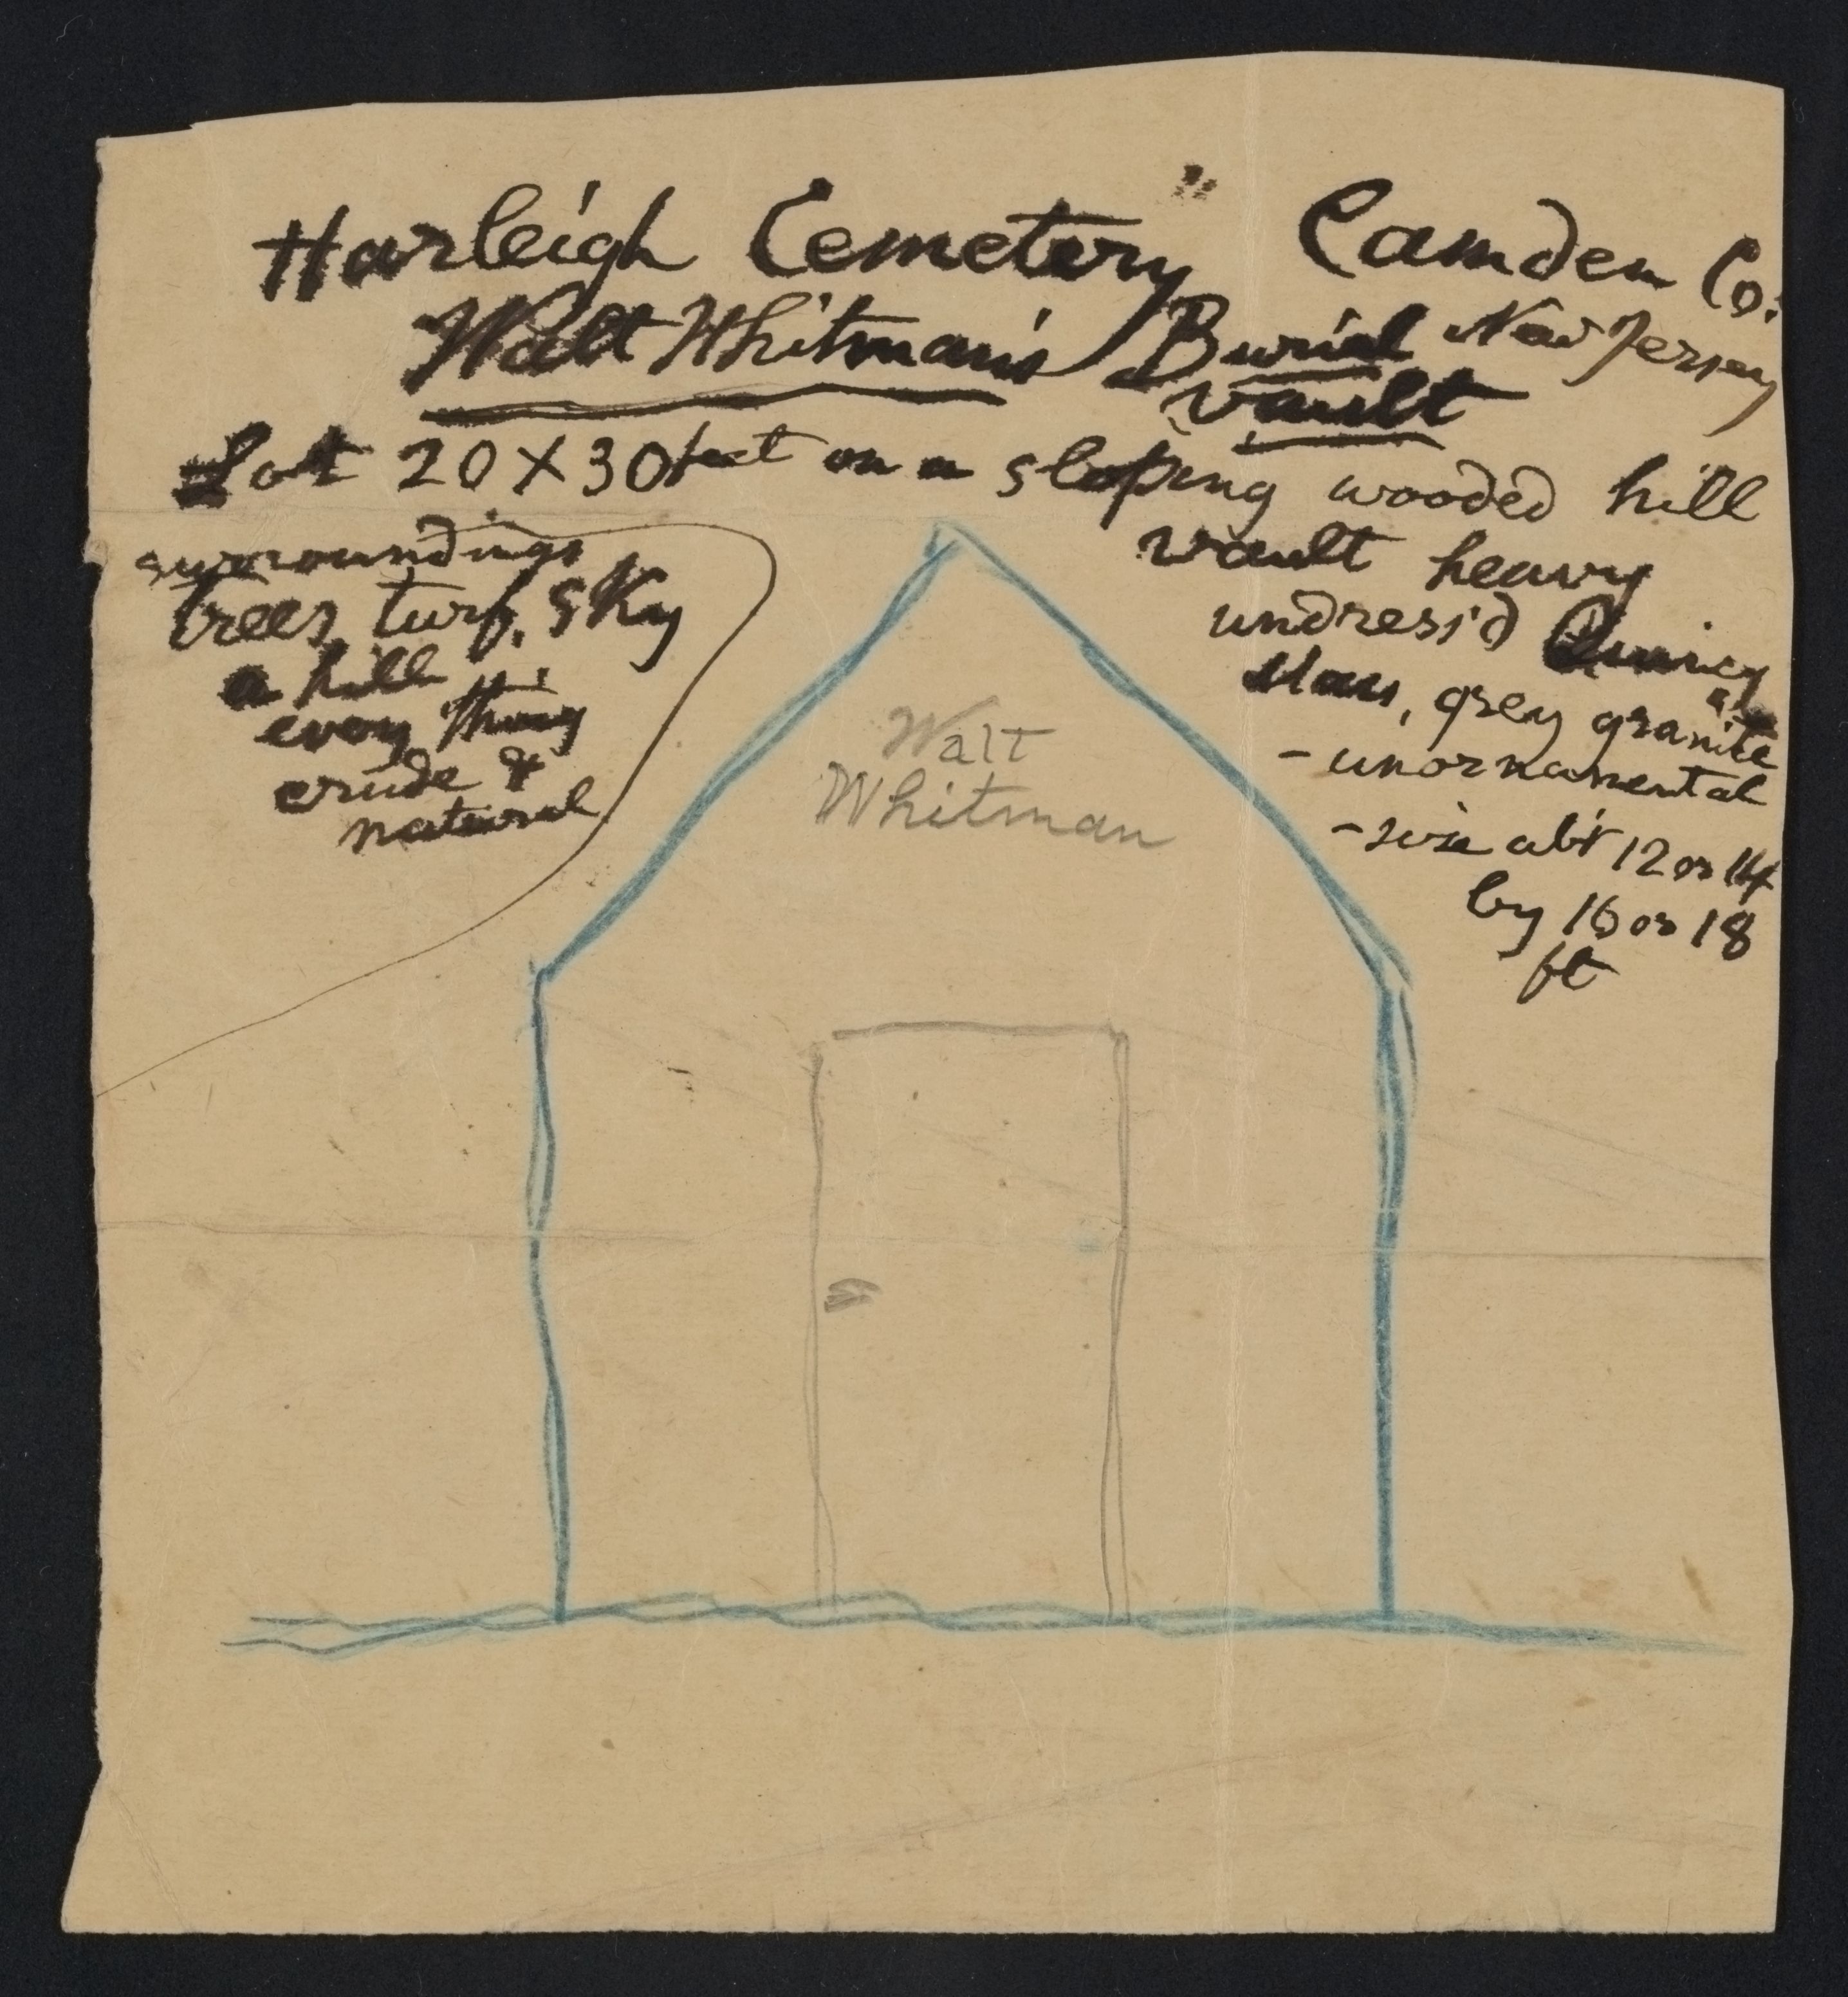 Harleigh Cemetery " Camden Co:
Walt Whitman's Burial New Jersey
vault
Lot 20 X 30 feet on a sloping wooded hill
surroundings
trees, turf, sky
a hill
every thing
crude &
natural
vault heavy
undress'd Quincy
Mass, grey granite
- unornamental
- size ab't 12 or 14
by 16 or 18
ft
Walt
Whitman